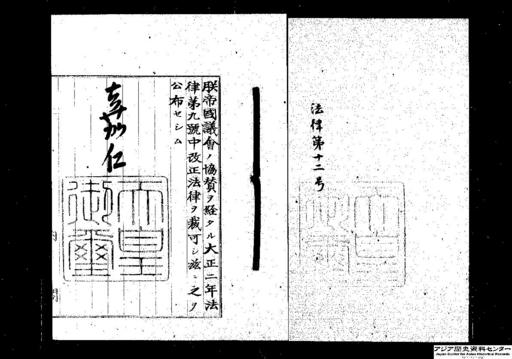 法律第十二号
朕帝國議會ノ協賛ヲ経タル大正二年法
律第九號中改正法律ヲ裁可シ茲ニ之ヲ
公布セシム
嘉仁
天皇
御璽
アジア歴史資料センター
Japan Center for Asian Historical Records